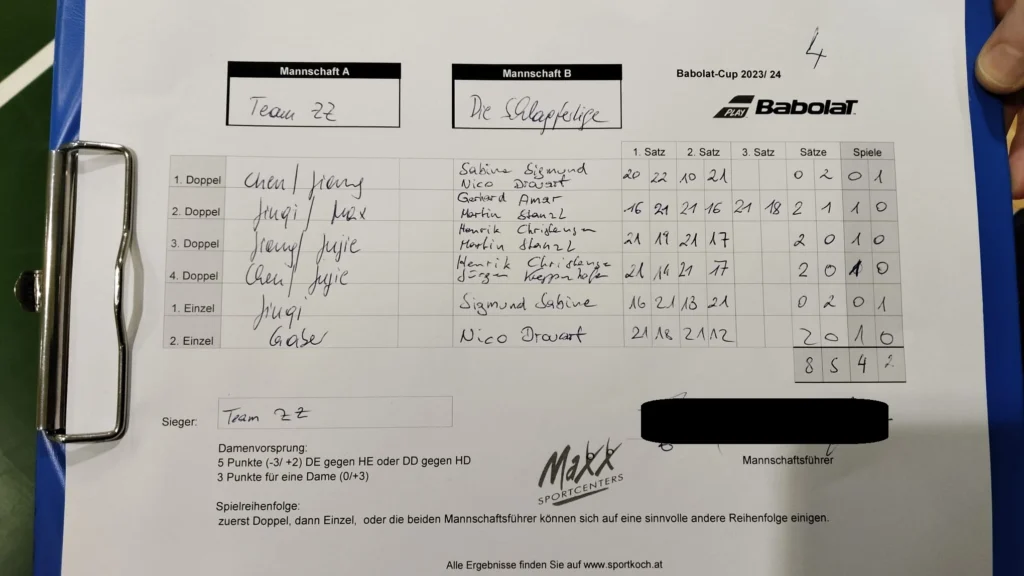 4
Mannschaft A Mannschaft B Babolat-Cup 2023/ 24
Team ZZ Die Schlagfertige PLAY BABOLAT
1. Satz 2. Satz 3. Satz Sätze Spiele
1. Doppel Chen/ Jiang Sabine Sigmund 20 22 10 21 0 2 0 1
Nico Drouart
2. Doppel Jinqi/ Max Gerhard Amar 16 21 21 16 21 18 2 1 1 0
Martin Stanzl
3. Doppel Jiang/ Jujie Henrik Christensen 21 19 21 17 2 0 1 0
Martin Stanzl
4. Doppel Chen/ Jujie Henrik Christense 21 14 21 17 2 0 1 0
Jürgen
1. Einzel Jinqi Sigmund Sabine 16 21 13 21 0 2 0 1
2. Einzel Gaber Nico Drouart 21 18 21 12 2 0 1 0
8 5 4 2
Sieger: Team ZZ
Damenvorsprung:
5 Punkte (-3/ +2) DE gegen HE oder DD gegen HD
3 Punkte für eine Dame (0/+3)
MaXX
SPORTCENTERS
Mannschaftsführer
Spielreihenfolge:
zuerst Doppel, dann Einzel, oder die beiden Mannschaftsführer können sich auf eine sinnvolle andere Reihenfolge einigen.
Alle Ergebnisse finden Sie auf www.sportkoch.at